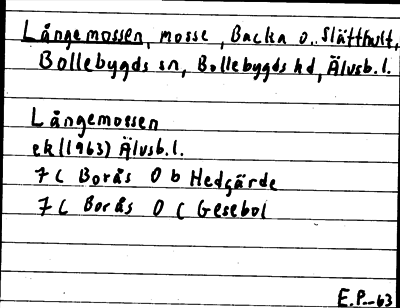 Långemossen, mosse, Backa o. Slätthult,
Bollebygds sn, Bollebygds hd, Älvsb.l.
Långemossen
ek (1963) Älvsb.l.
7 C Borås 0 b Hedgärde
7 C Borås 0 c Gesebol
E.P.-63